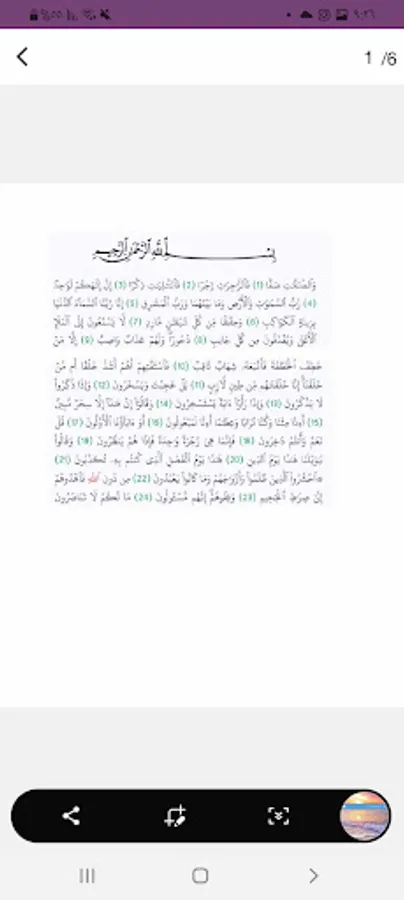 ٩:٢٦ %٥٥
1 /6
بِسْمِ ٱللَّهِ ٱلرَّحْمَٰنِ ٱلرَّحِيمِ
وَٱلصَّٰٓفَّٰتِ صَفًّا (1) فَٱلزَّٰجِرَٰتِ زَجْرًا (2) فَٱلتَّٰلِيَٰتِ ذِكْرًا (3) إِنَّ إِلَٰهَكُمْ لَوَٰحِدٌ
(4) رَّبُّ ٱلسَّمَٰوَٰتِ وَٱلْأَرْضِ وَمَا بَيْنَهُمَا وَرَبُّ ٱلْمَشَٰرِقِ (5) إِنَّا زَيَّنَّا ٱلسَّمَآءَ ٱلدُّنْيَا
بِزِينَةٍ ٱلْكَوَاكِبِ (6) وَحِفْظًا مِّن كُلِّ شَيْطَٰنٍ مَّارِدٍ (7) لَّا يَسَّمَّعُونَ إِلَى ٱلْمَلَإِ
ٱلْأَعْلَىٰ وَيُقْذَفُونَ مِن كُلِّ جَانِبٍ (8) دُحُورًا وَلَهُمْ عَذَابٌ وَاصِبٌ (9) إِلَّا مَنْ
خَطِفَ ٱلْخَطْفَةَ فَأَتْبَعَهُۥ شِهَابٌ ثَاقِبٌ (10) فَٱسْتَفْتِهِمْ أَهُمْ أَشَدُّ خَلْقًا أَم مَّنْ
خَلَقْنَآ إِنَّا خَلَقْنَٰهُم مِّن طِينٍ لَّازِبٍۭ (11) بَلْ عَجِبْتَ وَيَسْخَرُونَ (12) وَإِذَا ذُكِّرُوا۟
لَا يَذْكُرُونَ (13) وَإِذَا رَأَوْا۟ ءَايَةً يَسْتَسْخِرُونَ (14) وَقَالُوٓا۟ إِنْ هَٰذَآ إِلَّا سِحْرٌ مُّبِينٌ
(15) أَءِذَا مِتْنَا وَكُنَّا تُرَابًا وَعِظَٰمًا أَءِنَّا لَمَبْعُوثُونَ (16) أَوَءَابَآؤُنَا ٱلْأَوَّلُونَ (17) قُلْ
نَعَمْ وَأَنتُمْ دَٰخِرُونَ (18) فَإِنَّمَا هِىَ زَجْرَةٌ وَٰحِدَةٌ فَإِذَا هُمْ يَنظُرُونَ (19) وَقَالُوا۟
يَٰوَيْلَنَا هَٰذَا يَوْمُ ٱلدِّينِ (20) هَٰذَا يَوْمُ ٱلْفَصْلِ ٱلَّذِى كُنتُم بِهِۦ تُكَذِّبُونَ (21)
۞ٱحْشُرُوا۟ ٱلَّذِينَ ظَلَمُوا۟ وَأَزْوَٰجَهُمْ وَمَا كَانُوا۟ يَعْبُدُونَ (22) مِن دُونِ ٱللَّهِ فَٱهْدُوهُمْ
إِلَىٰ صِرَٰطِ ٱلْجَحِيمِ (23) وَقِفُوهُمْ إِنَّهُم مَّسْـُٔولُونَ (24) مَا لَكُمْ لَا تَنَاصَرُونَ